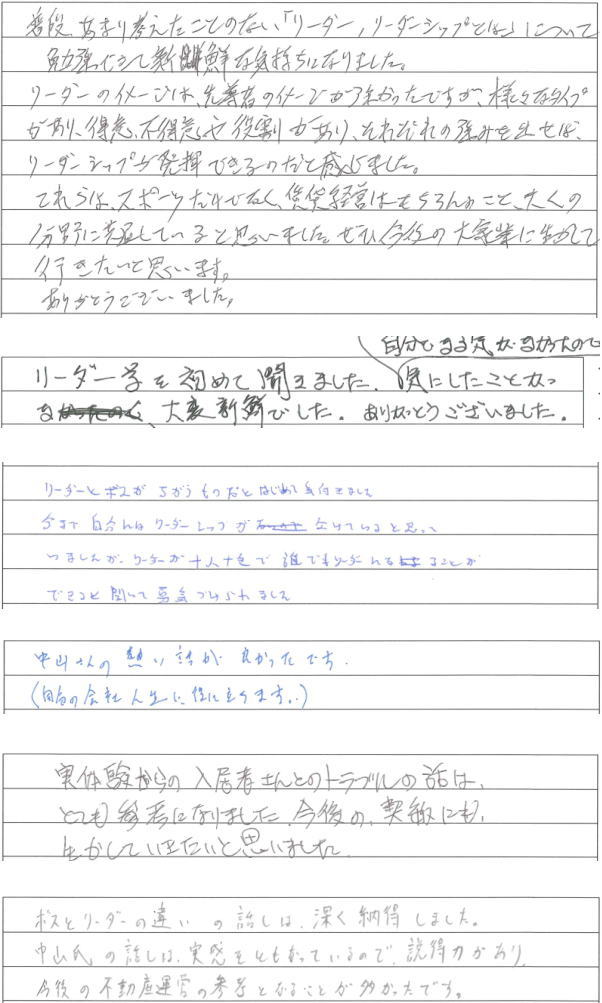 普段、あまり考えたことのない「リーダー、リーダーシップとは」について
勉強できて新鮮な気持ちになりました。
リーダーのイメージは、先導者のイメージが強かったですが、様々なタイプ
があり、得意、不得意や役割があり、それぞれの強みを出せば、
リーダーシップが発揮できるのだと感じました。
これらは、スポーツだけでなく、賃貸経営はもちろんのこと、大くの
分野に共通していると思いました。ぜひ今後の大家業に生かして
行きたいと思います。
ありがとうございました。
自分でまる気がなかったので
リーダー学を初めて聞きました。気にしたことなか
大変新鮮でした。ありがとうございました。
リーダーとボスがちがうものだとはじめて気付きました
今まで自分にはリーダーシップが 欠けていると思って
いましたが、リーダーが十人十色で誰でもリーダーになることが
できると聞いて勇気づけられました
中山さんの熱い話が良かったです。
(自分の会社人生に役に立ちます。)
実体験からの入居者さんとのトラブルの話は、
とても参考になりました。今後の、契約にも、
生かしていきたいと思いました。
ボスとリーダーの違いの話しは、深く納得しました。
中山氏の話しは、実感をともなっているので、説得力があり、
今後の不動産運営の参考となることが多かったです。